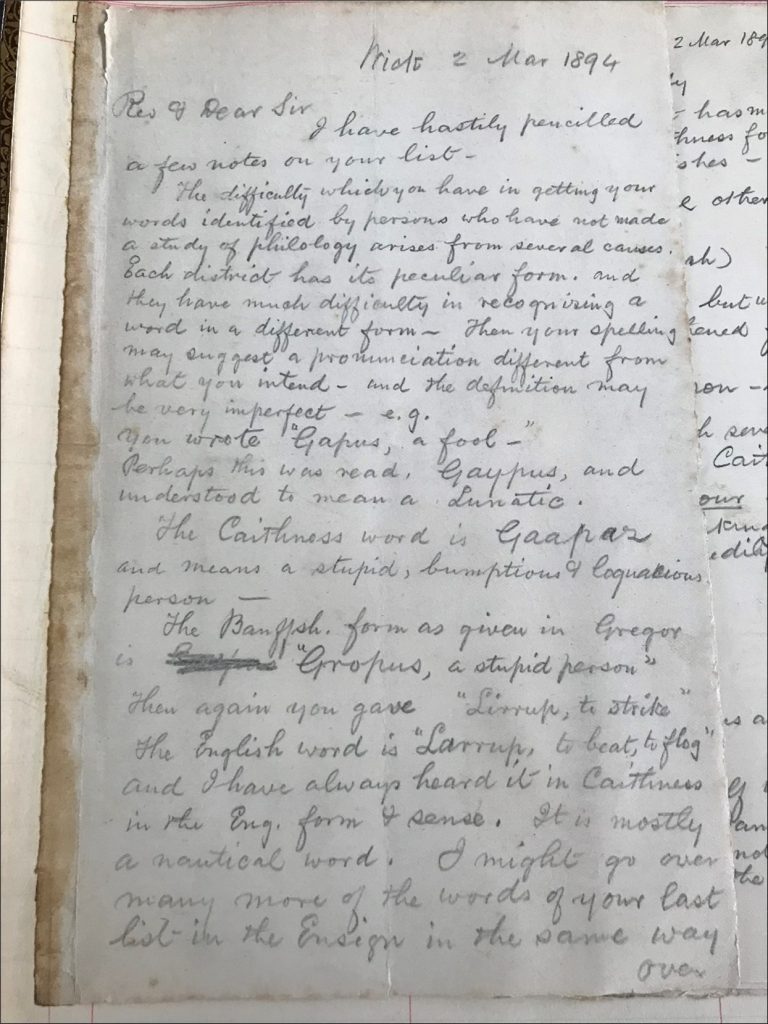 Wick 2 Mar 1894
Rev & Dear Sir
I have hastily pencilled
a few notes on your list -
The difficulty which you have in getting your
words identified by persons who have not made
a study of philology arises from several causes.
Each district has its peculiar form. and
they have much difficulty in recognizing a
word in a different form - Then your spelling
may suggest a pronunciation different from
what you intend - and the definition may
be very imperfect - e.g.
you wrote "Gapus, a fool -"
Perhaps this was read, Gaypus, and
understood to mean a Lunatic.
The Caithness word is Gaapaz
and means a stupid, bumptious & loquacious
person -
The Banffsh. form as given in Gregor
is "Gropus, a stupid person"
Then again you gave "Lirrup, to strike"
The English word is "Larrup, to beat, to flog"
and I have always heard it in Caithness
in the Eng. form & sense. It is mostly
a nautical word. I might go over
many more of the words of your last
list in the Ensign in the same way
over
2 Mar 189
has m
e other
but
our